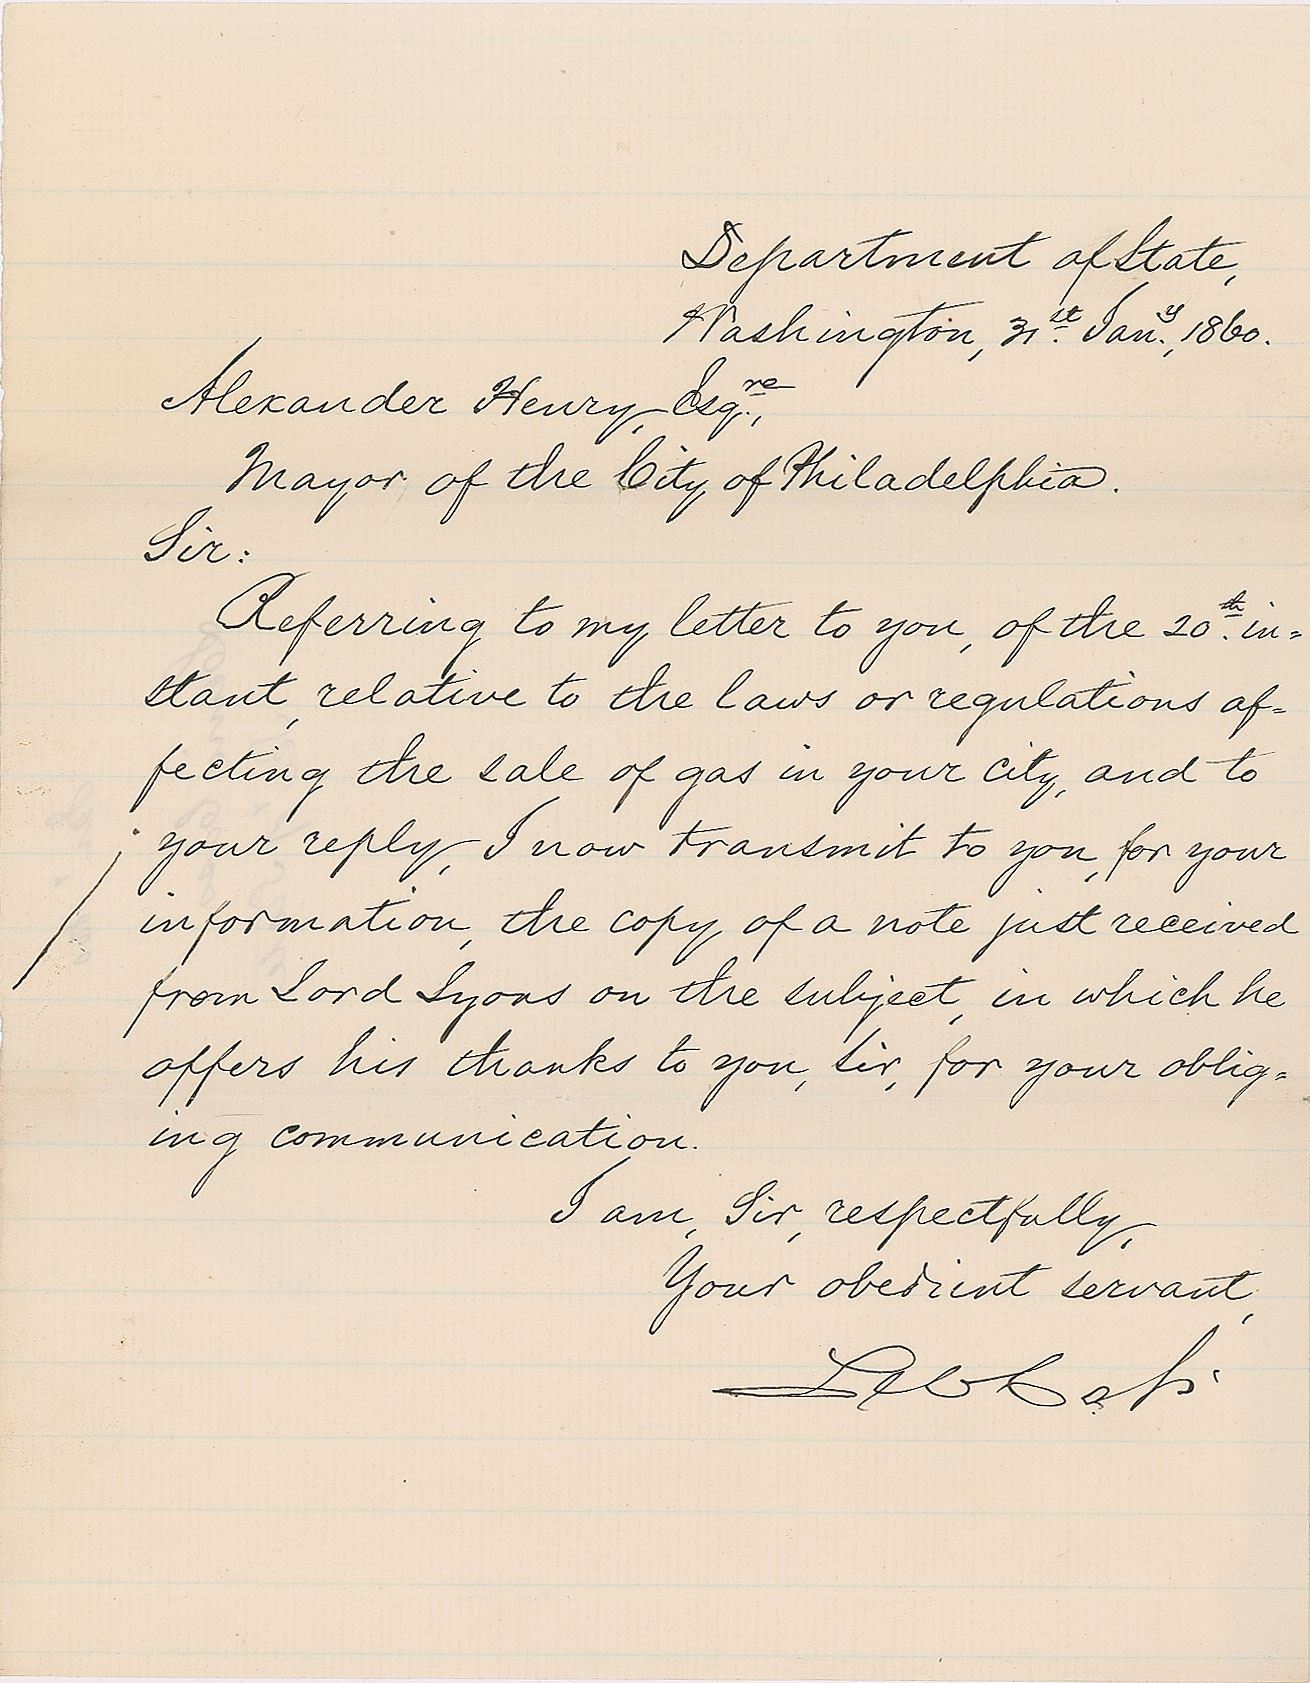 Department of State,
Washington, 31st Jany., 1860.
Alexander Henry, Esqre.,
Mayor of the City of Philadelphia.
Sir:
Referring to my letter to you, of the 20th. in=
stant, relative to the laws or regulations af=
fecting the sale of gas in your city, and to
your reply, I now transmit to you, for your
information, the copy of a note just received
from Lord Lyons on the subject, in which he
offers his thanks to you, Sir, for your oblig=
ing communication.
I am, Sir, respectfully,
Your obedient servant,
Lew Cass